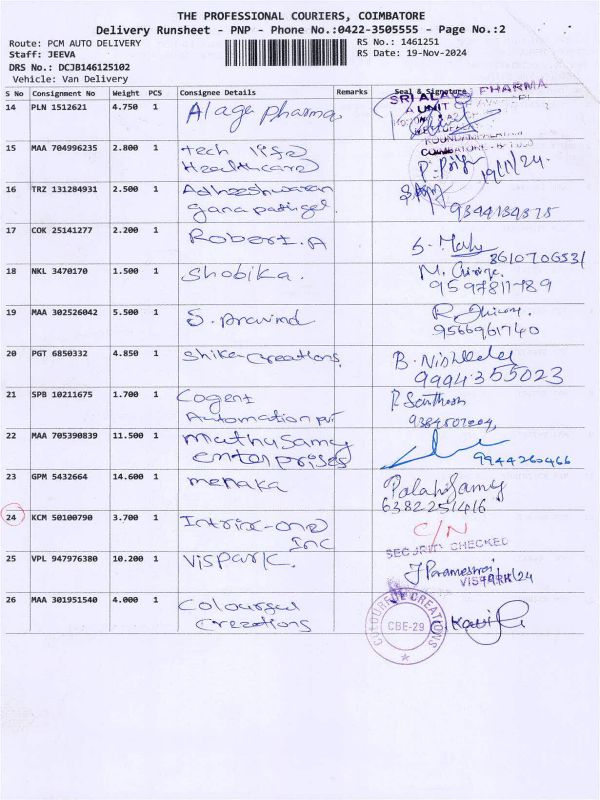 THE PROFESSIONAL COURIERS, COIMBATORE
Delivery Runsheet - PNP - Phone No.:0422-3505555 - Page No.:2
Route: PCM AUTO DELIVERY
RS No.: 1461251
Staff: JEEVA
RS Date: 19-Nov-2024
DRS No.: DCJB146125102
Vehicle: Van Delivery
S No Consignment No Weight PCS Consignee Details Remarks Seal & Signature
14 PLN 1512621 4.750 1 Alaga pharma
SRI ALAGA PHARMA
A UNIT
COIMBATORE
15 MAA 704996235 2.800 1 tech life
Healthcare
19/11/24.
16 TRZ 131284931 2.500 1 Adheeshwaran
9344134375
17 COK 25141277 2.200 1 Robert. A
8610706531
18 NKL 3470170 1.500 1 Shobika.
9597811789
19 MAA 302526042 5.500 1 S. Aravind
9566961740
20 PGT 6850332 4.850 1 Shika Creations
99943 55023
21 SPB 10211675 1.700 1 Cogent
Automation pvt
P Santhosh
22 MAA 705390839 11.500 1 Muthusamy
enterprises
9944260466
23 GPM 5432664 14.600 1 menaka
Palanisamy
6382251416
24 KCM 50100790 3.700 1 Intrix-one
Inc
C/N
SECURITY CHECKED
25 VPL 947976380 10.200 1 Vispark.
J Parameshwari
VISPARK
26 MAA 301951540 4.000 1 Colourful
Creations
COLOURFUL CREATIONS
CBE-29